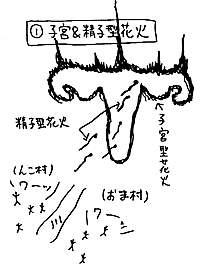 ①子宮&精子型花火
子宮型花火
精子型花火
(んこ村)
ワーッ
(おま村)
ワーッ